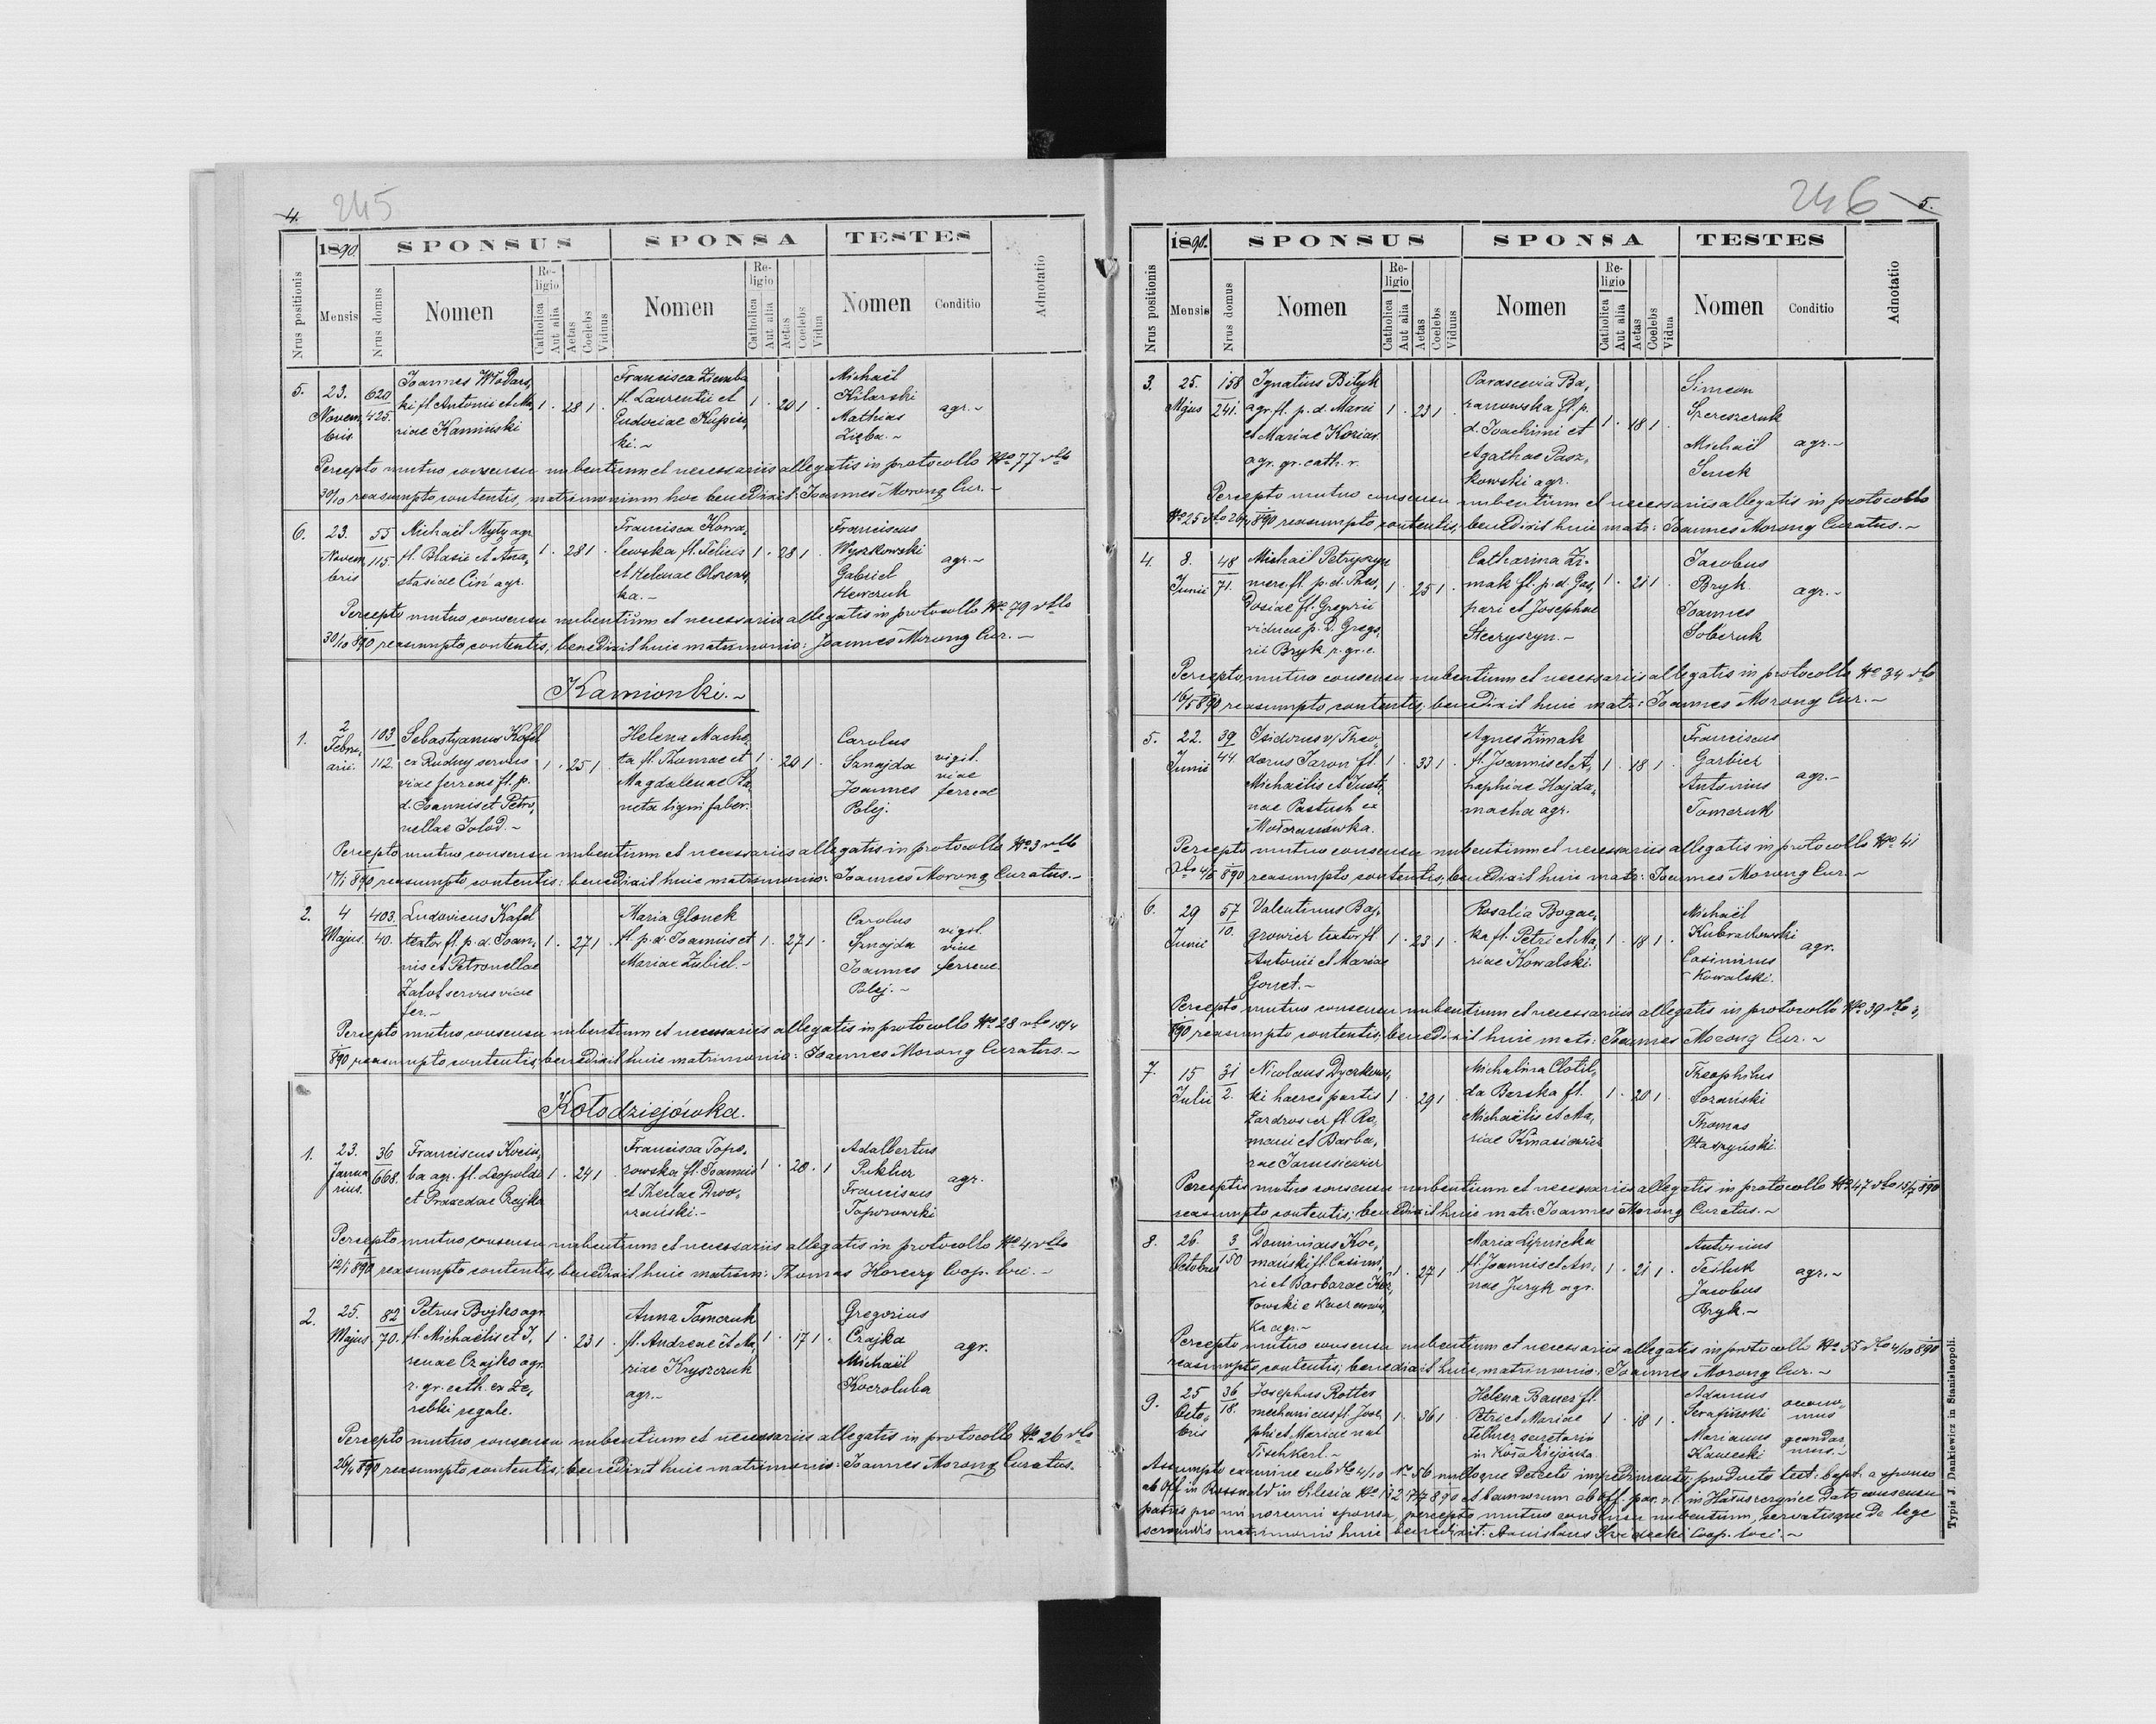 4. 245
1890. SPONSUS SPONSA TESTES
Nrus positionis Mensis Nrus domus Nomen Religio Catholica Aut alia Aetas Coelebs Viduus Nomen Religio Catholica Aut alia Aetas Coelebs Vidua Nomen Conditio Adnotatio
5. 23. Novembris 620/425.
Joannes Włodars,
ki fl Antonii et Ma,
riae Kamiński
1 . 28 1 .
Francisca Ziemba
fl. Laurentii et
Eudociae
ki.~
1 . 20 1 .
Michaël
Kilarski
Mathias
Zięba.~
agr.~
Percepto mutuo consensu nubentium et necessariis allegatis in protocollo No 77 dto
30/10 reasumpto contentis, matrimonium hoc benedixit: Joannes Morong Cur.~
6. 23. Novembris 55/115.
Michaël Myty agr
fl. Blasii et Ana,
stasiae Ciń agr.
1 . 28 1 .
Francisca Kowa,
lewska fl. Felicis
et Helenae
ka.~
1 . 28 1 .
Franciscus
Wyszkowski
Gabriel
Hewczuk
agr.~
Percepto mutuo consensu nubentium et necessariis allegatis in protocollo No. 79 dto
30/10 890 reasumpto contentis; benedixit huic matrimonio: Joannes Morong Cur.~
Kamionki.~
1. 2 Februarii. 103/112.
Sebastyanus Kafel
ex Rudny servus
viae ferreae fl. p.
d. Joannis et Petro,
nellae
1 . 25 1
Helena Macho,
ta fl. Thomae et
Magdalenae Pla,
neta ligni faber.
1 . 20 1 .
Carolus
Sznajda
Joannes
Polej.
vigil.
viae
ferreae
Percepto mutuo consensu nubentium et necessariis allegatis in protocollo No 3 dto
17/1 890 reasumpto contentis: benedixit huic matrimonio: Joannes Morong Curatus.~
2. 4 Majus. 403./40.
Ludovicus Kafel
textor fl. p. d. Joan,
nis et Petronellae
servus viae
fer.~
1 . 27 1 .
Maria Glonek
fl. p. d. Joannis et
Mariae Zubiel.~
1 . 27 1 .
Carolus
Sznajda
Joannes
Polej.~
vigil.
viae
ferreae.
Percepto mutuo consensu nubentium et necessariis allegatis in protocollo No. 28 dto 18/4
890 reasumpto contentis; benedixit huic matrimonio: Joannes Morong Curatus.~
Kołodziejówka.
1. 23. Januarius. 36/668.
Franciscus Kociu,
ba agr. fl. Leopoldi
et Praxedae Czajka
1 . 24 1 .
Francisca Topo,
rowska fl. Joannis
et Theclae Dwo,
rzański.~
1 . 20 . 1
Adalbertus
Pukler
Franciscus
Toporowski
agr.
Percepto mutuo consensu nubentium et necessariis allegatis in protocollo No 4 dto
12/1 890 reasumpto contentis, benedixit huic matrim: Thomas Coop. loci.~
2. 25. Majus 82/70.
Petrus Bojko agr.
fl. Michaëlis et I,
renae Czajko agr.
r. gr. cath. ex Ze,
rebki regale.
1 . 23 1 .
Anna Tomczuk
fl. Andreae et Ma,
riae Kryszczuk
agr.~
1 . 17 1 .
Gregorius
Czajka
Michaël
Koczoluba
agr.
Percepto mutuo consensu nubentium et necessariis allegatis in protocollo No 26 dto
26/4 890 reasumpto contentis; benedixit huic matrimonio: Joannes Morong Curatus.
246 5.
1890. SPONSUS SPONSA TESTES
Nrus positionis Mensis Nrus domus Nomen Religio Catholica Aut alia Aetas Coelebs Viduus Nomen Religio Catholica Aut alia Aetas Coelebs Vidua Nomen Conditio Adnotatio
3. 25. Majus 158/241.
Ignatius Bilyk
agr. fl. p. d. Marci
et Mariae Kozias
agr. gr. cath. r.
1 . 23 1 .
Parascevia Ba,
ranowska fl. p.
d. Joachimi et
Agathae Pasz,
kowski agr.
1 . 18 1 .
Simeon
Szereszczuk
Michaël
Senek
agr.~
Percepto mutuo consensu nubentium et necessariis allegatis in protocollo
No 25 dto 26/4 890 reasumpto contentis; benedixit huic matr: Joannes Morong Curatus.~
4. 8. Junii 48/71.
Michaël Petryszyn
merc. fl. p. d. Theo,
dosiae fl. Gregorii
viduae p. d. Grego,
rii Bryk r. gr. c.
1 . 25 1 .
Catharina Zi-
mak fl. p. d. Gas,
pari et Josephae
Steczyszyn.~
1 . 21 1 .
Jacobus
Bryk.
Joannes
Soberuk
agr.~
Percepto mutuo consensu nubentium et necessariis allegatis in protocollo No 34 dto
16/5 890 reasumpto contentis; benedixit huic matr: Joannes Morong Cur.~
5. 22. Junii 39/44.
Isidorus v/ Theo,
dorus Jaron fl.
Michaëlis et Justi,
nae Pastuch ex
Mołczanówka.
1 . 33 1 .
Agnes Zimak
fl. Joannis et A,
haphiae Hajda,
macha agr.
1 . 18 1 .
Franciscus
Garbier
Antonius
Tomczuk
agr.~
Percepto mutuo consensu nubentium et necessariis allegatis in protocollo No. 41
dto 4/6 890 reasumpto contentis; benedixit huic matr: Joannes Morong Cur.~
6. 29 Junii 57/10.
Valentinus Baj,
growicz textor fl
Antonii et Mariae
Gonet.~
1 . 23 1 .
Rosalia Bogac,
ka fl. Petri et Ma,
riae Kowalski.
1 . 18 1 .
Michaël
Kubrakowski
Casimirus
Kowalski.
agr.
Percepto mutuo consensu nubentium et necessariis allegatis in protocollo No. 39 dto
890 reasumpto contentis; benedixit huic matr: Joannes Morong Cur.~
7. 15 Julii 31/2.
Nicolaus Dyczkows,
ki haeres partis
Zazdrosier fl. Ro,
mani et Barba,
rae Janusiewicz
1 . 29 1
Michalina Clotil,
da Barska fl.
Michaëlis et Ma,
riae Kmasiewicz
1 . 20 1 .
Theophilus
Thomas
Ptaszyński.
Perceptis mutuo consensu nubentium et necessariis allegatis in protocollo No 47 dto 15/7 890
reasumpto contentis; benedixit huic matr: Joannes Morong Curatus.~
8. 26. Octobris 3/150
Dominicus Koc,
mański fl. Casimi,
ri et Barbarae Koz,
łowski e Kaczanów,
ka agr.~
1 . 27 1 .
Maria Lipnicka
fl. Joannis et An,
nae Juryk agr.
1 . 21 1 .
Antonius
Teśluk
Jacobus
Bryk.~
agr.~
Percepto mutuo consensu nubentium et necessariis allegatis in protocollo No. 55 dto 4/10 890
reasumpto, contentis; benedixit huic matrimonio: Joannes Morong Cur.~
9. 25 Octobris 36/18.
Josephus Rotter
mechanicus fl. Jose,
phi et Mariae nat
Tischkerl.~
1 . 36 1 .
Helena Bauer fl.
Petri et Mariae
Felkner secretarii
in Kołodziejówka
1 . 18 1 .
Adamus
Serafiński
Marianus
Kawecki
oecono-
mus
gendar
mus.~
Assumpto examine sub dto 4/10 No 56 nulloque detecto impedimento; producto test: bapt. a sponso
ab Off in Rosswald in Silesia No 132 17/7 890 et bannorum ab off. par. r. l. in dato consensu
patris pro minorenni sponsa, percepto mutuo consensu nubentium, servatisque de lege
servandis matrimonio huic benedixit: Coop. loci.~
Typis J. Dankiewicz in Stanislaopoli.